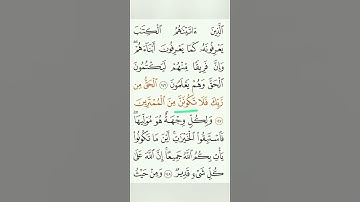 ٱلَّذِينَ ءَاتَيْنَٰهُمُ ٱلْكِتَٰبَ
يَعْرِفُونَهُۥ كَمَا يَعْرِفُونَ أَبْنَآءَهُمْ
وَإِنَّ فَرِيقًا مِّنْهُمْ لَيَكْتُمُونَ
ٱلْحَقَّ وَهُمْ يَعْلَمُونَ ١٤٦ ٱلْحَقُّ مِن
رَّبِّكَ فَلَا تَكُونَنَّ مِنَ ٱلْمُمْتَرِينَ
١٤٧ وَلِكُلٍّ وِجْهَةٌ هُوَ مُوَلِّيهَا
فَٱسْتَبِقُوا۟ ٱلْخَيْرَٰتِ أَيْنَ مَا تَكُونُوا۟
يَأْتِ بِكُمُ ٱللَّهُ جَمِيعًا إِنَّ ٱللَّهَ عَلَىٰ
كُلِّ شَىْءٍ قَدِيرٌ ١٤٨ وَمِنْ حَيْثُ